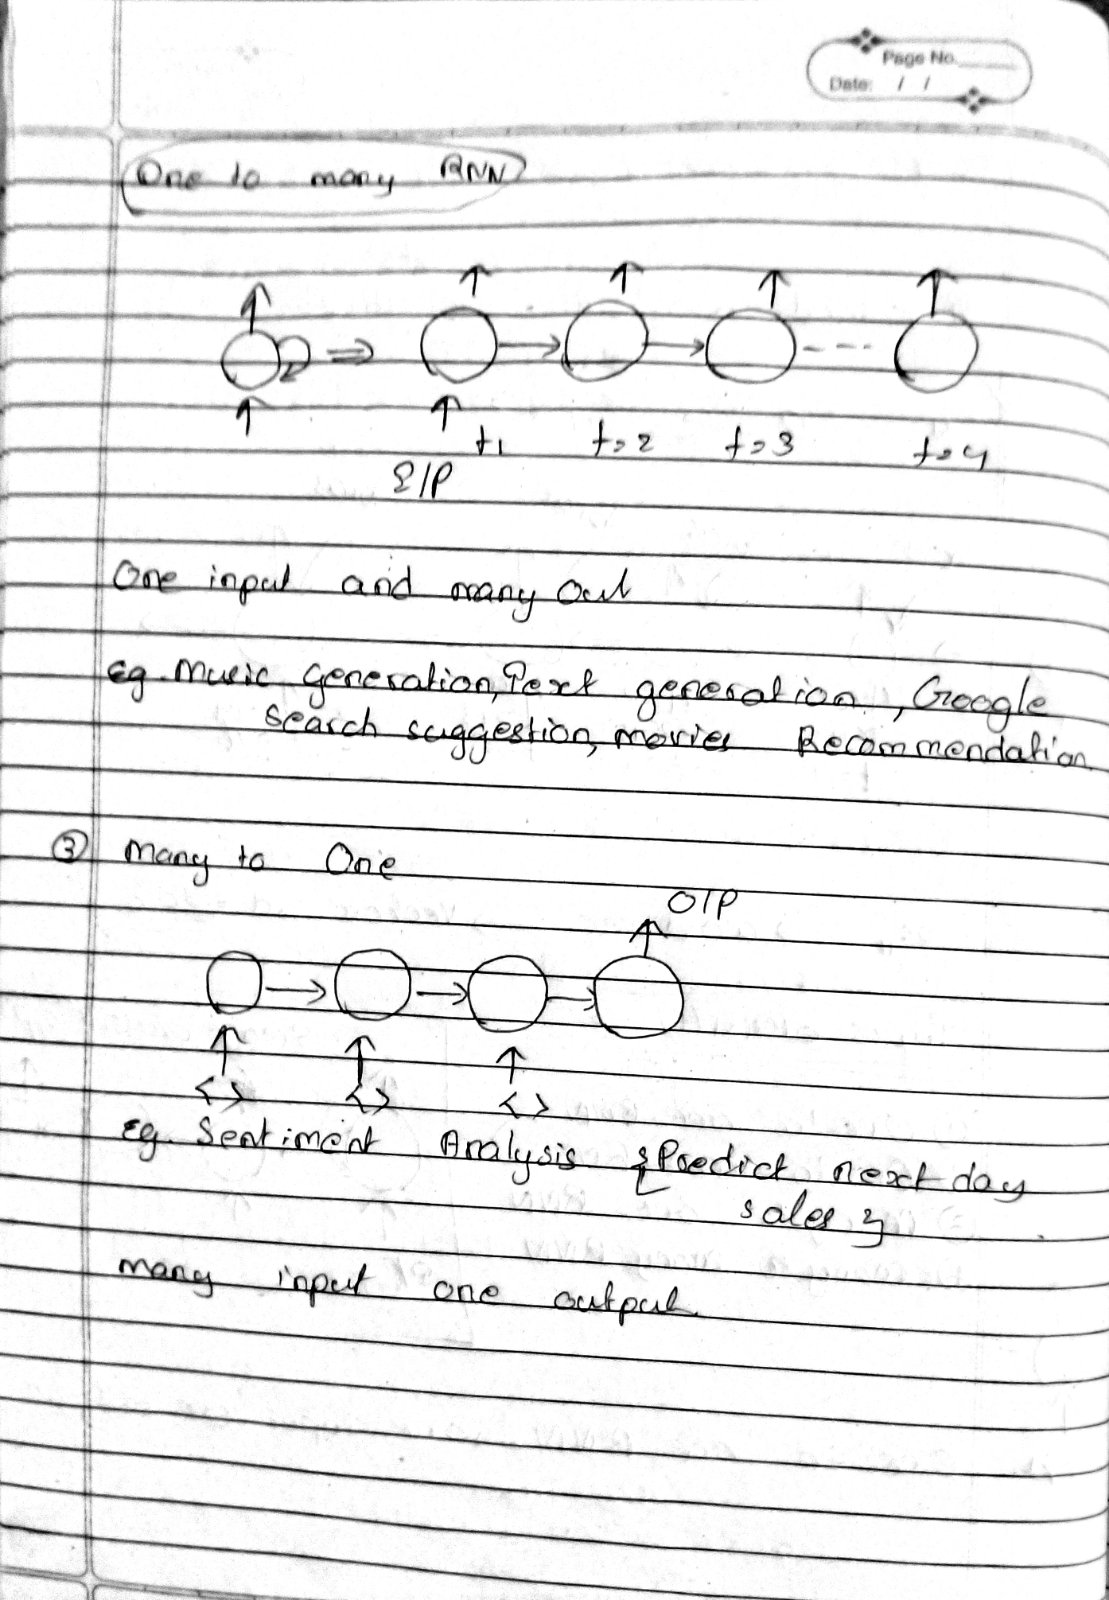 Page No.
Date: / /
One to many RNN
t1 t=2 t=3 t=4
I/P
One input and many out
eg. Music generation, Text generation, Google
search suggestion, movies Recommendation
③ Many to One
O/P
< > < > < >
eg. Sentiment Analysis { Predict next day
sales }
many input one output.